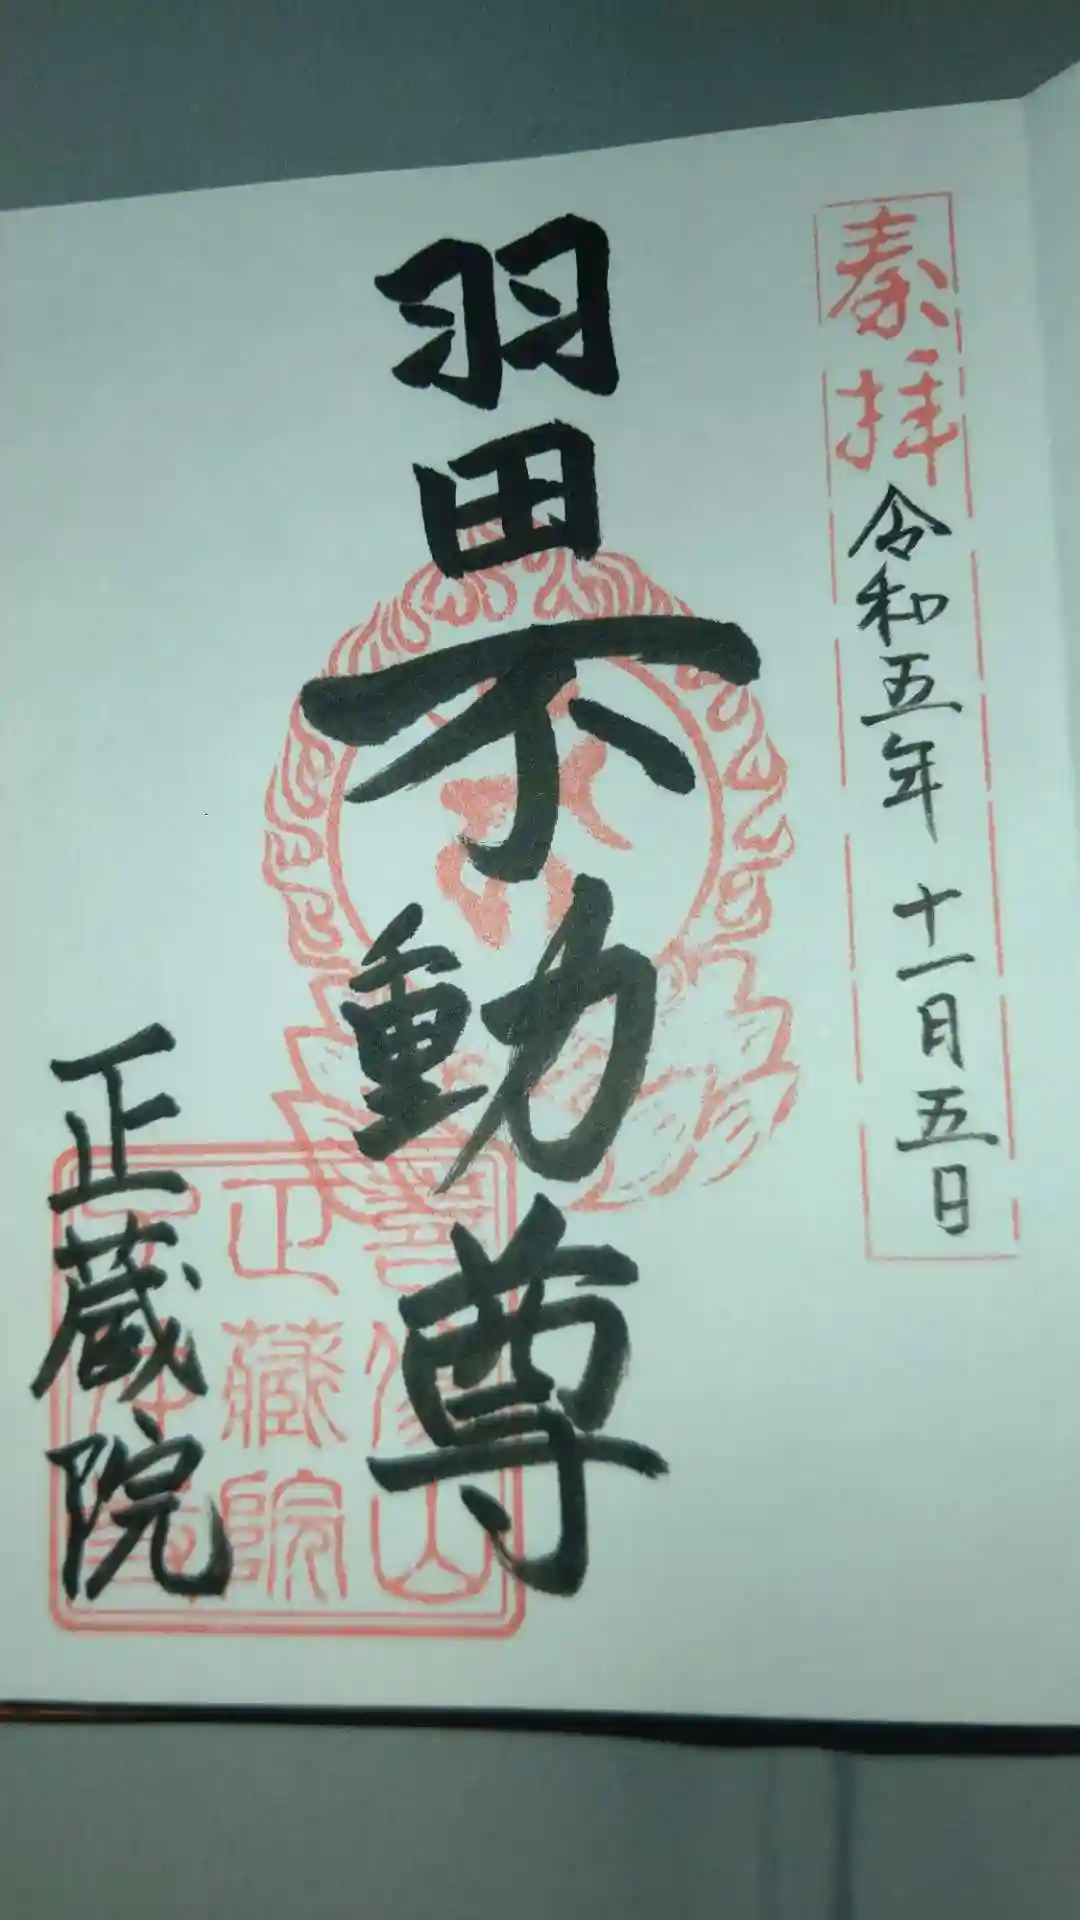 奉拝
令和五年 十一月五日
羽田不動尊
正蔵院
正藏院